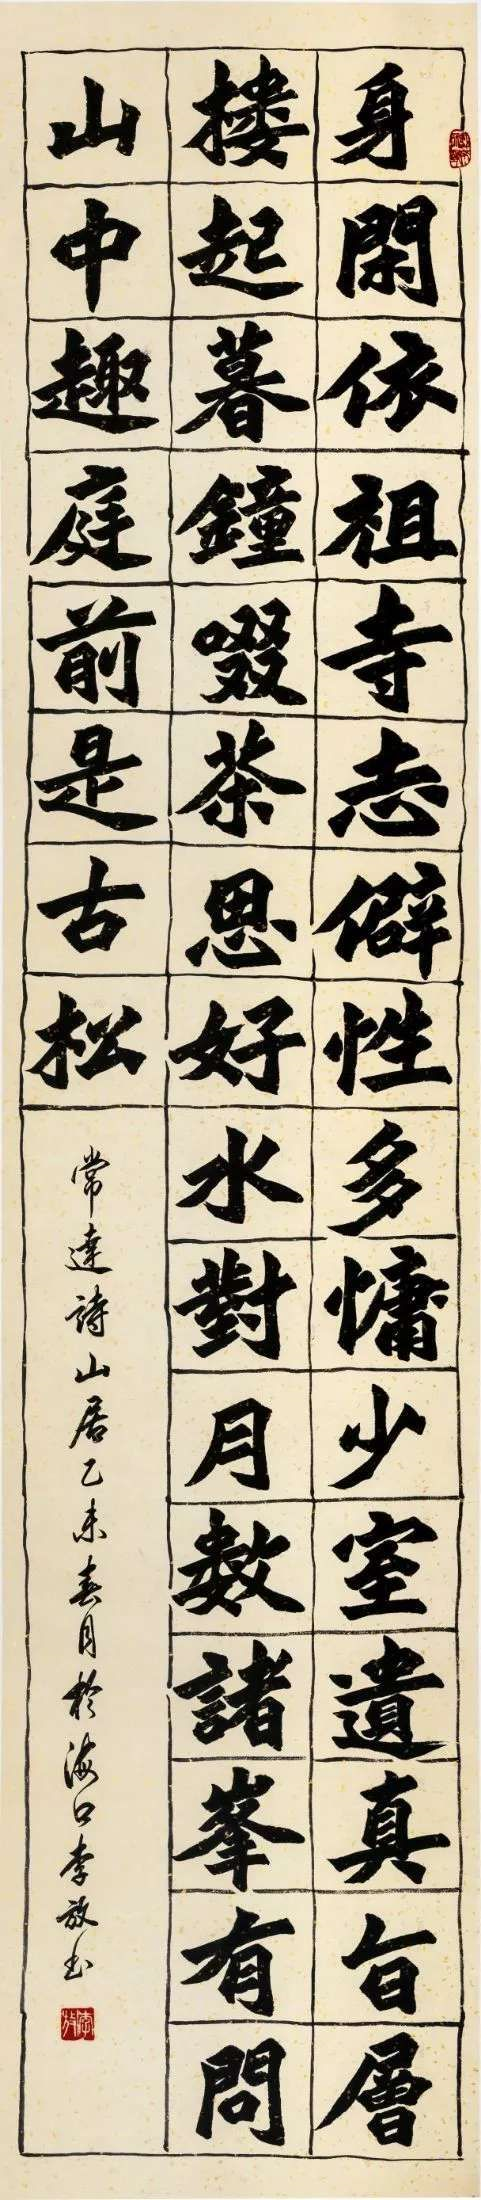 身閑依祖寺志僻性多慵少室遺真旨層
樓起暮鐘啜茶思好水對月數諸峯有問
山中趣庭前是古松
常達詩山居乙未春月於海口李放书